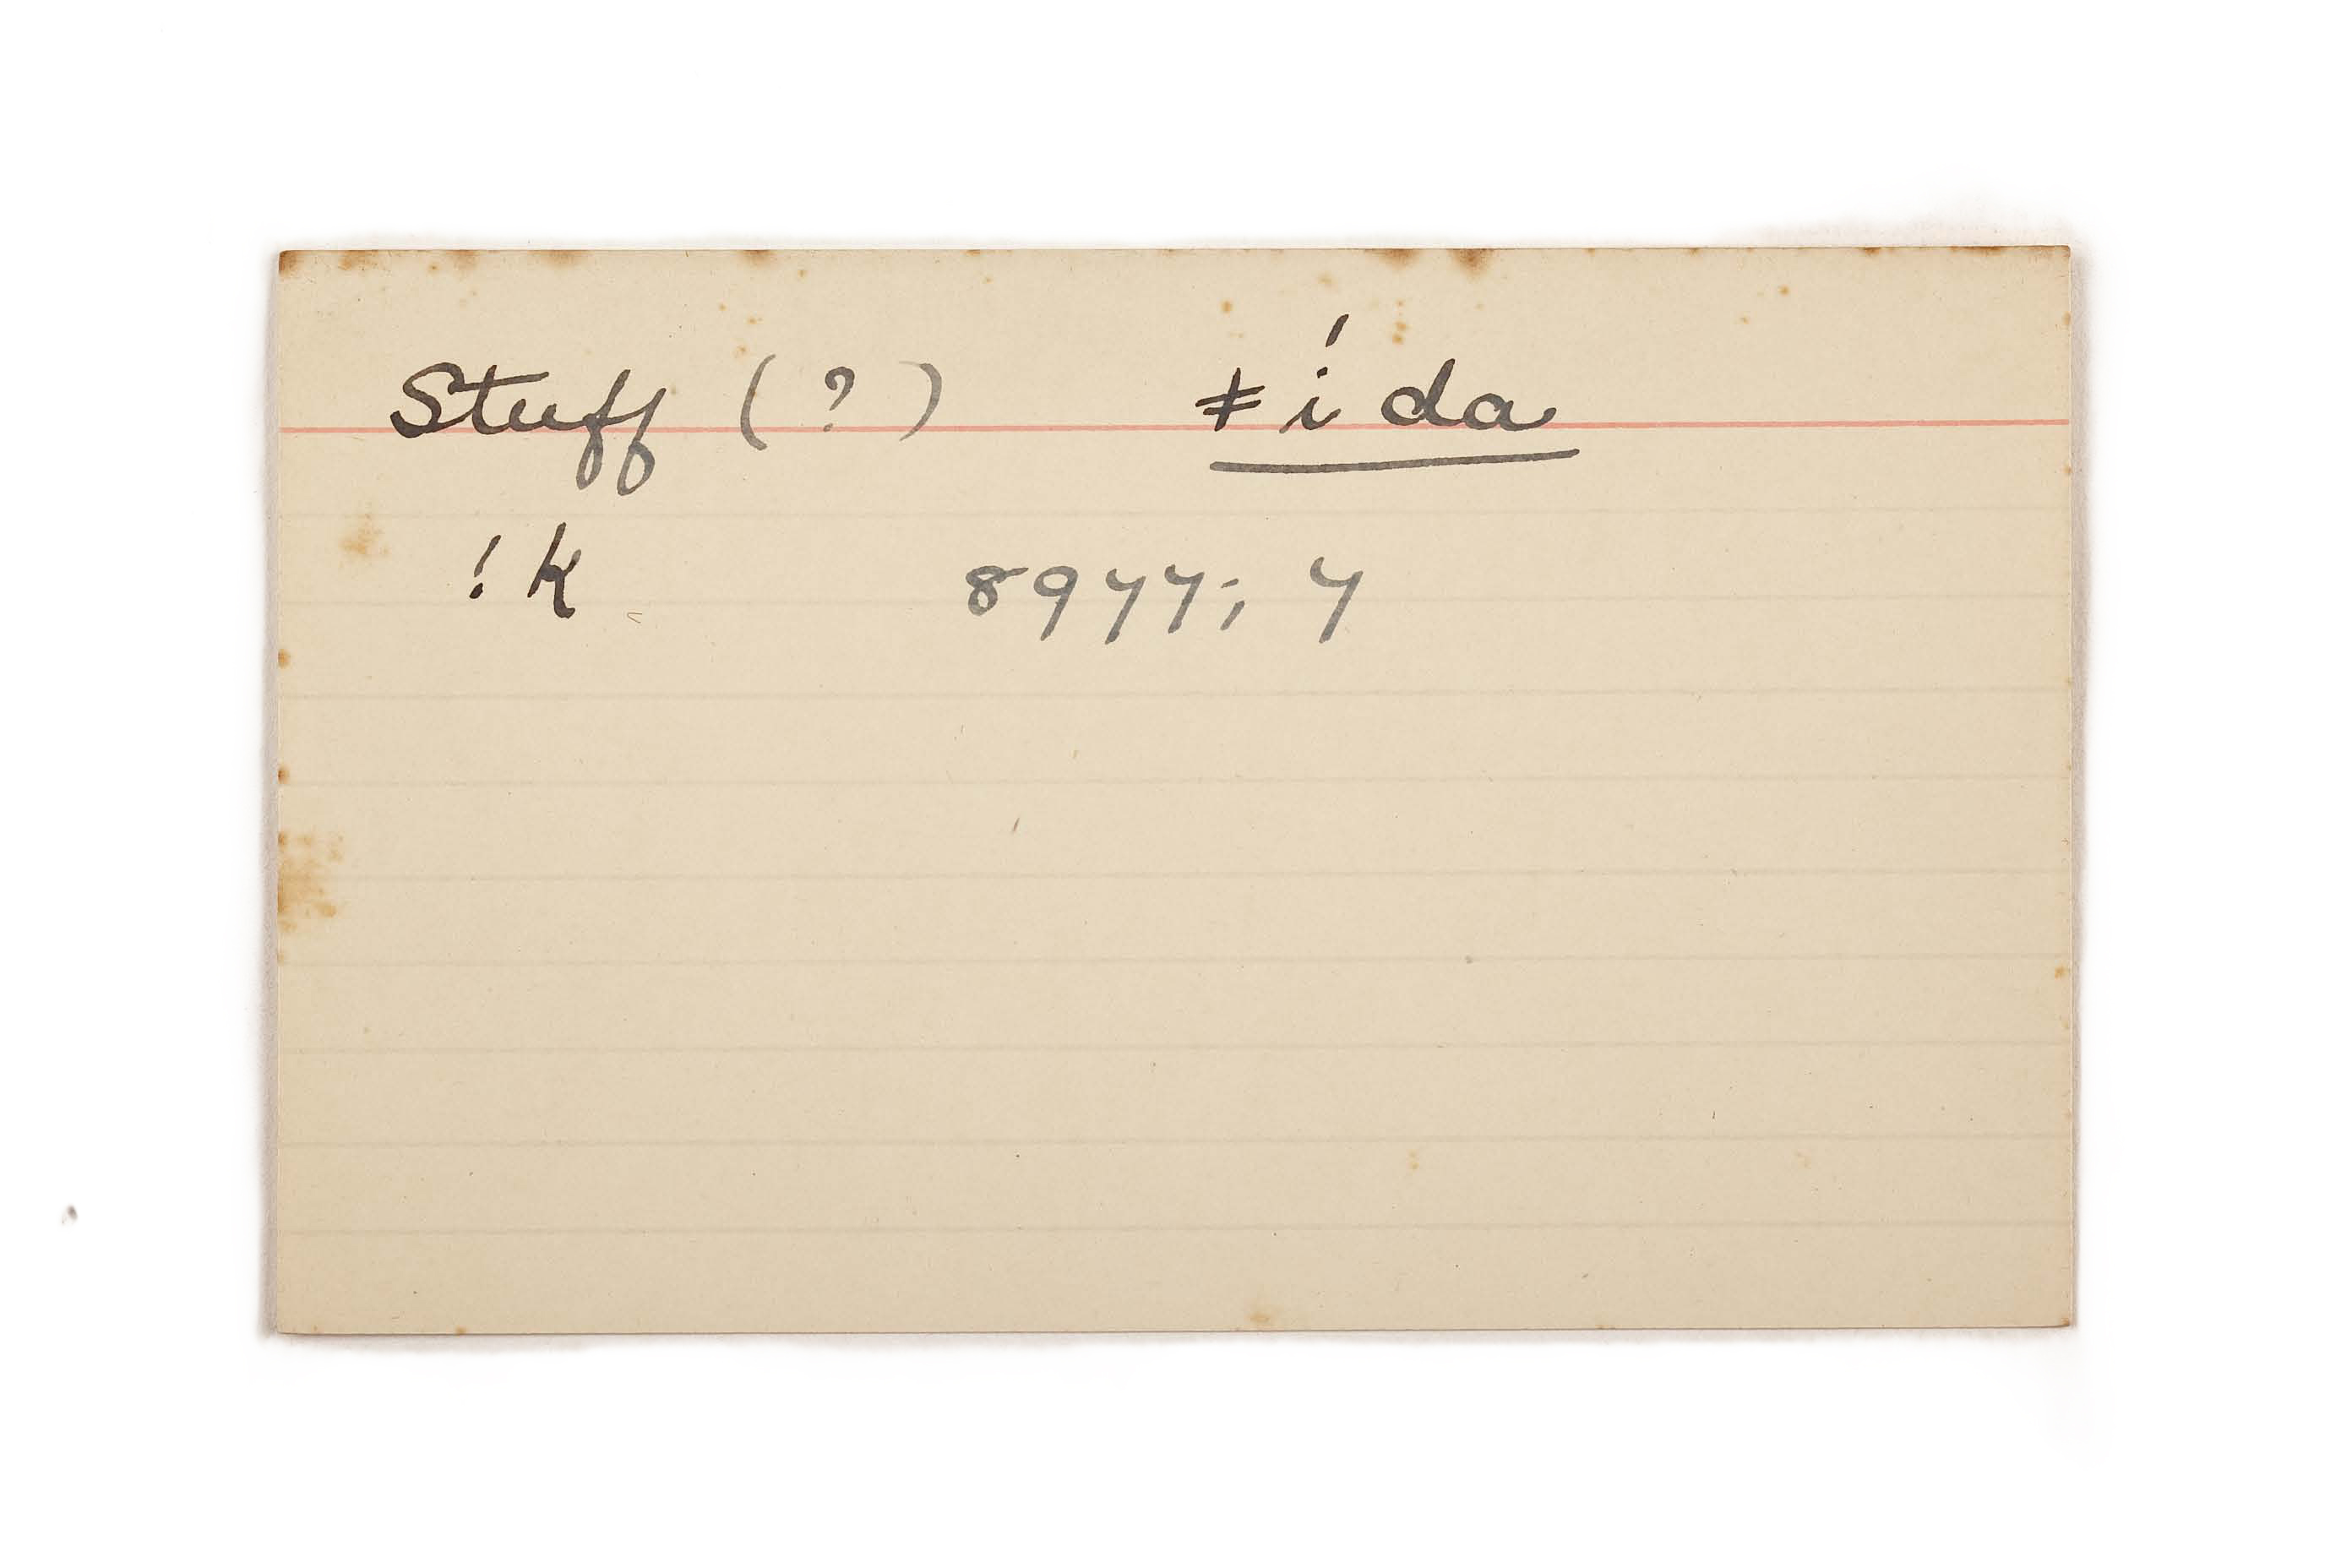 Stuff (?) ǂí da
!k 8977; 7